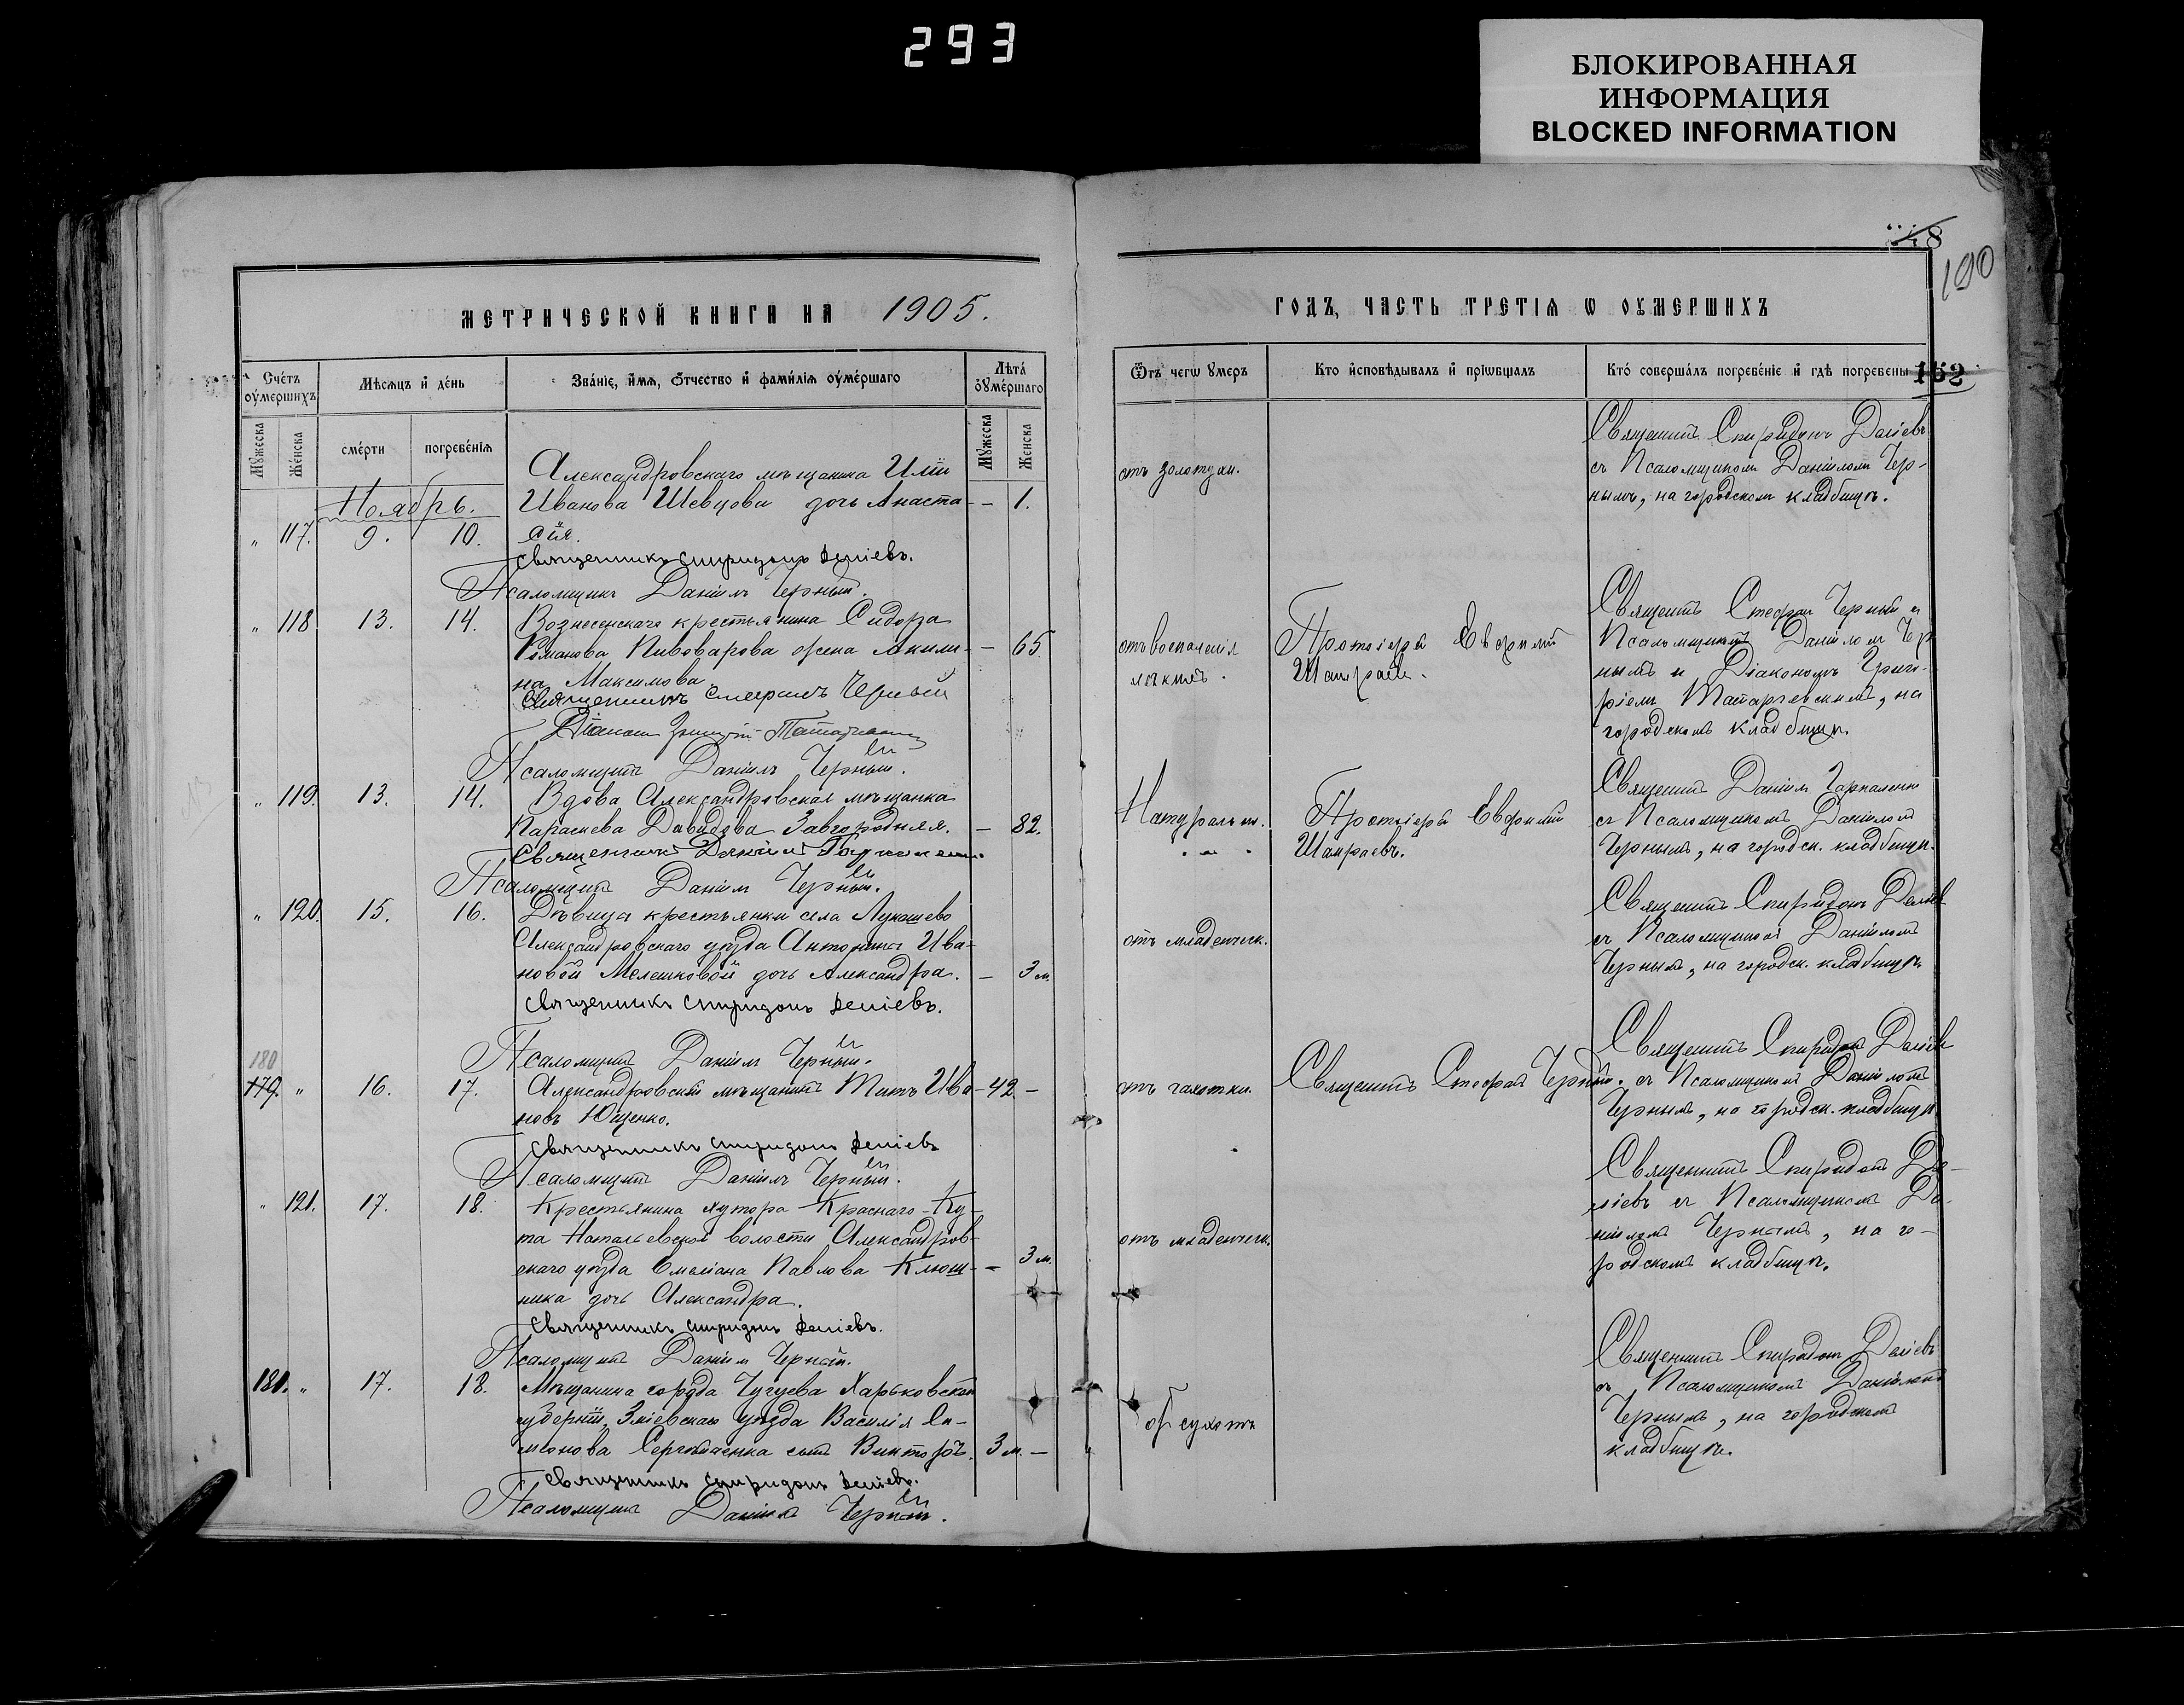 293
БЛОКИРОВАННАЯ
ИНФОРМАЦИЯ
BLOCKED INFORMATION
190
152
МЕТРИЧЕСКОЙ КНИГИ НА 1905.
ГОДЪ, ЧАСТЬ ТРЕТІѦ Ѡ ОУМЕРШИХЪ
Счетъ оумершихъ
Мѣсяцъ и день
Званіе, имя, отчество и фамилія оумершаго
Лѣта оумершаго
Мужеска
Женска
смерти
погребенія
Мужеска
Женска
Ѿъ чегѡ умеръ
Кто исповѣдывалъ и пріѡбщалъ
Кто совершалъ погребеніе и гдѣ погребены
Ноябрь.
Александровскаго мѣщанина Иліи
Иванова Шевцова дочь Анаста- — 1.
" 117. 9. 10. сія.
Священникъ Спиридонъ Деліевъ.
Псаломщикъ Даніилъ Черный.
отъ золотухи.
Священникъ Спиридонъ Деліевъ
съ Псаломщикомъ Даніиломъ Чер-
нымъ, на городскомъ кладбищѣ.
" 118. 13. 14. Вознесенскаго крестьянина Сидора
Романова Пивоварова жена Акили- — 65.
на Максимова.
Священникъ Стефанъ Черный
Діаконъ Григорій
Псаломщикъ Даніилъ Черный.
отъ воспаленія
легкихъ.
Протоіерей Евфимій
Шамраевъ.
Священникъ Стефанъ Черный съ
Псаломщикомъ Даніиломъ Чер
нымъ и Діакономъ Григо-
ріемъ, на
городскомъ кладбищѣ.
" 119. 13. 14. Вдова Александровская мѣщанка
Параскева Давидова Завгородняя. — 82.
Священникъ Даніилъ
Псаломщикъ Даніилъ Черный.
Натуральн.
Протоіерей Евфимій
Шамраевъ.
Священникъ Даніилъ
съ Псаломщикомъ Даніиломъ
Чернымъ, на городск. кладбищѣ.
" 120. 15. 16. Дѣвицы крестьянки села Лукашево
Александровскаго уѣзда Антонины Ива-
новой Мелешковой дочь Александра. — 3 м.
Священникъ Спиридонъ Деліевъ.
Псаломщикъ Даніилъ Черный.
отъ младенческ.
Священникъ Спиридонъ Деліевъ
съ Псаломщикомъ Даніиломъ
Чернымъ, на городск. кладбищѣ.
180
179. " 16. 17. Александровскій мѣщанинъ Титъ Ива- 42. —
новъ Ющенко.
Священникъ Спиридонъ Деліевъ
Псаломщикъ Даніилъ Черный.
отъ чахотки.
Священникъ Стефанъ Черный.
Священникъ Спиридонъ Деліевъ
съ Псаломщикомъ Даніиломъ
Чернымъ, на городск. кладбищѣ
" 121. 17. 18. Крестьянина хутора Краснаго-Ку-
та Натальевской волости Александров-
скаго уѣзда Емеліана Павлова Клюш- — 3 м.
ника дочь Александра.
Священникъ Спиридонъ Деліевъ.
Псаломщикъ Даніилъ Черный.
отъ младенческ.
Священникъ Спиридонъ Де-
ліевъ съ Псаломщикомъ Да-
ніиломъ Чернымъ, на го-
родскомъ кладбищѣ.
181. " 17. 18. Мѣщанина города Чугуева Харьковской
губерніи, Зміевскаго уѣзда Василія Си-
меонова сынъ Викторъ. 3 м. —
Священникъ Спиридонъ Деліевъ.
Псаломщикъ Даніилъ Черный.
Священникъ Спиридонъ Деліевъ
съ Псаломщикомъ Даніиломъ
Чернымъ, на городскомъ
кладбищѣ.